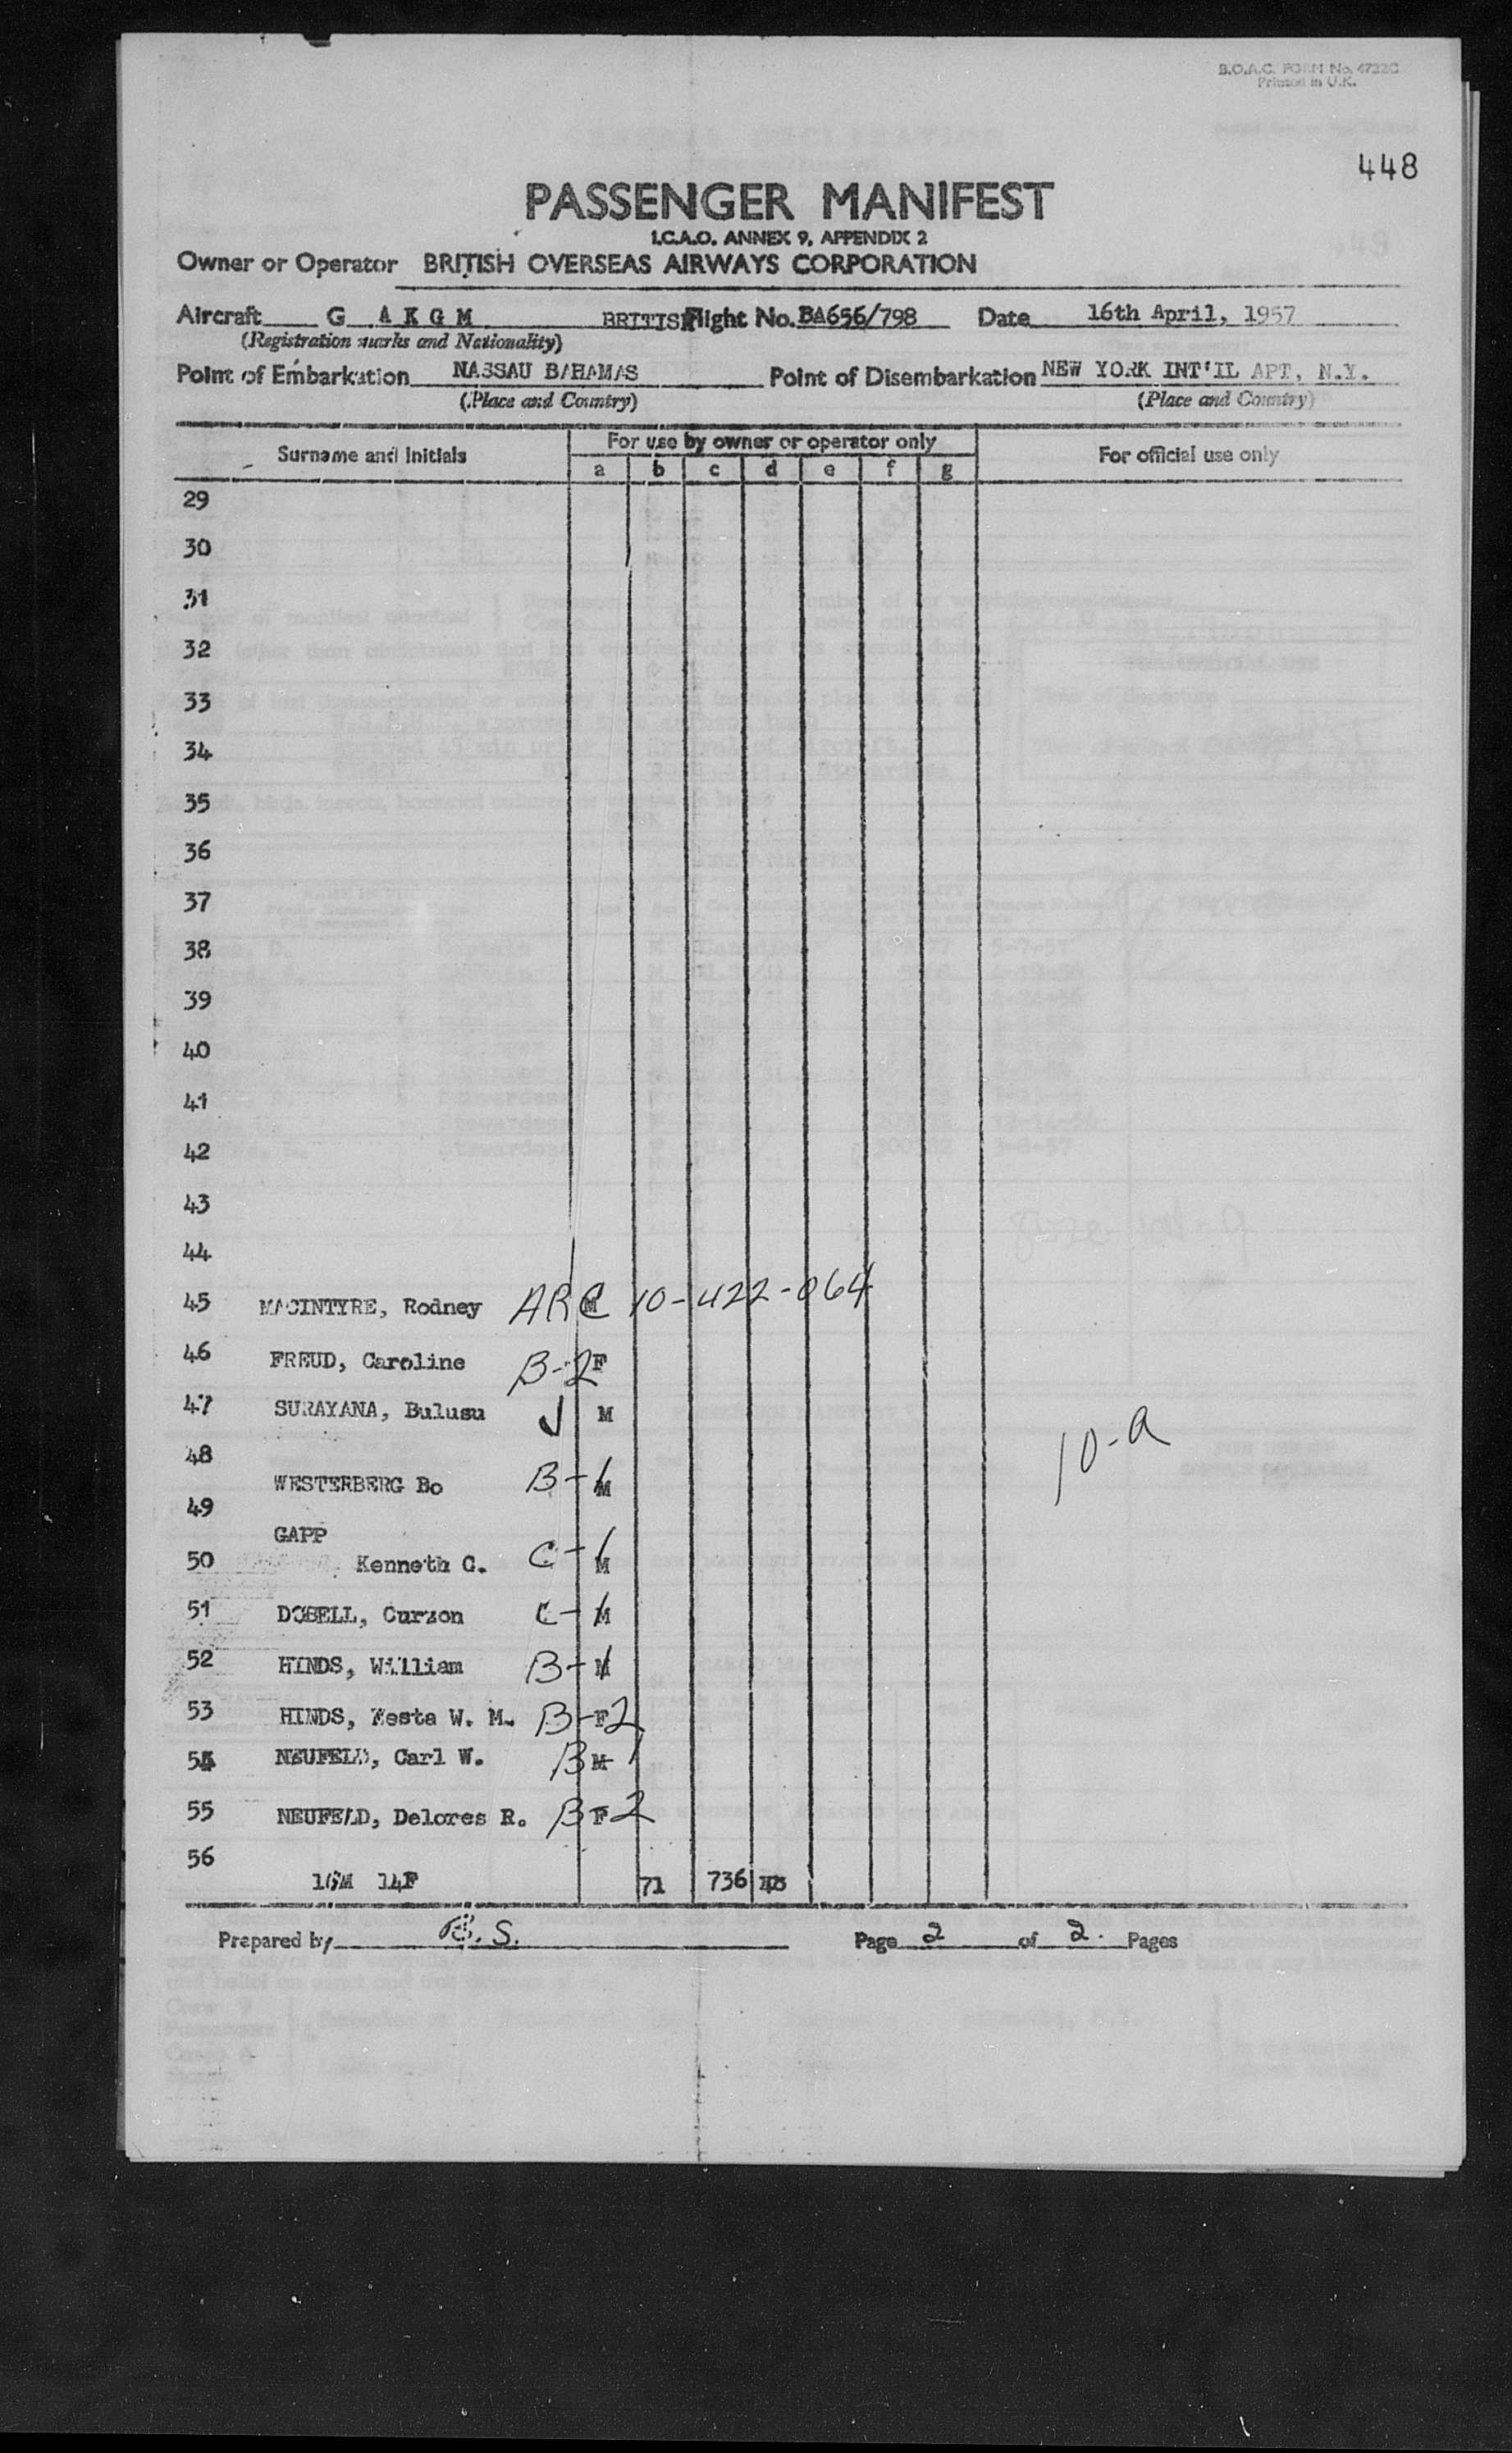 B.O.A.C. FORM No. 4732C
Printed in U.K.
448
PASSENGER MANIFEST
I.C.A.O. ANNEX 9, APPENDIX 2
Owner or Operator BRITISH OVERSEAS AIRWAYS CORPORATION
Aircraft G A K G M BRITISH Flight No. BA656/798 Date 16th April, 1957
(Registration marks and Nationality)
Point of Embarkation NASSAU BAHAMAS Point of Disembarkation NEW YORK INT'IL APT, N.Y.
(Place and Country) (Place and Country)
Surname and Initials For use by owner or operator only For official use only
a b c d e f g
29
30
31
32
33
34
35
36
37
38
39
40
41
42
43
44
45 MACINTYRE, Rodney ARC M 10-422-064
46 FREUD, Caroline B-2 F
47 SURAYANA, Bulusu M
10-a
48
WESTERBERG Bo B-1 M
49
GAPP
50 Kenneth C. C-1 M
51 DOBELL, Curzon C-1 M
52 HINDS, William B-1 M
53 HINDS, Zesta W. M. B-2 F
54 NEUFELD, Carl W. B-1 M
55 NEUFELD, Delores R. B-2 F
56
14F 71 736
Prepared by Page 2 of 2. Pages